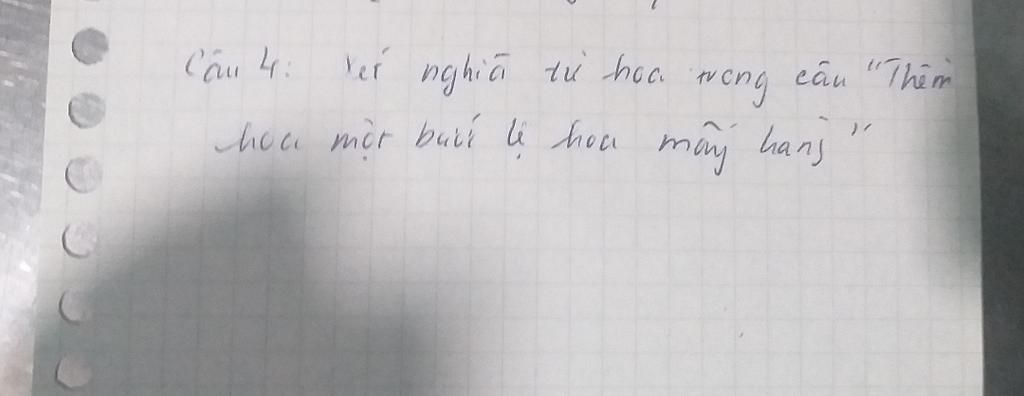 Câu 4: Xét nghĩa từ hoa trong câu "Thềm
hoa một bước lệ hoa mấy hàng"